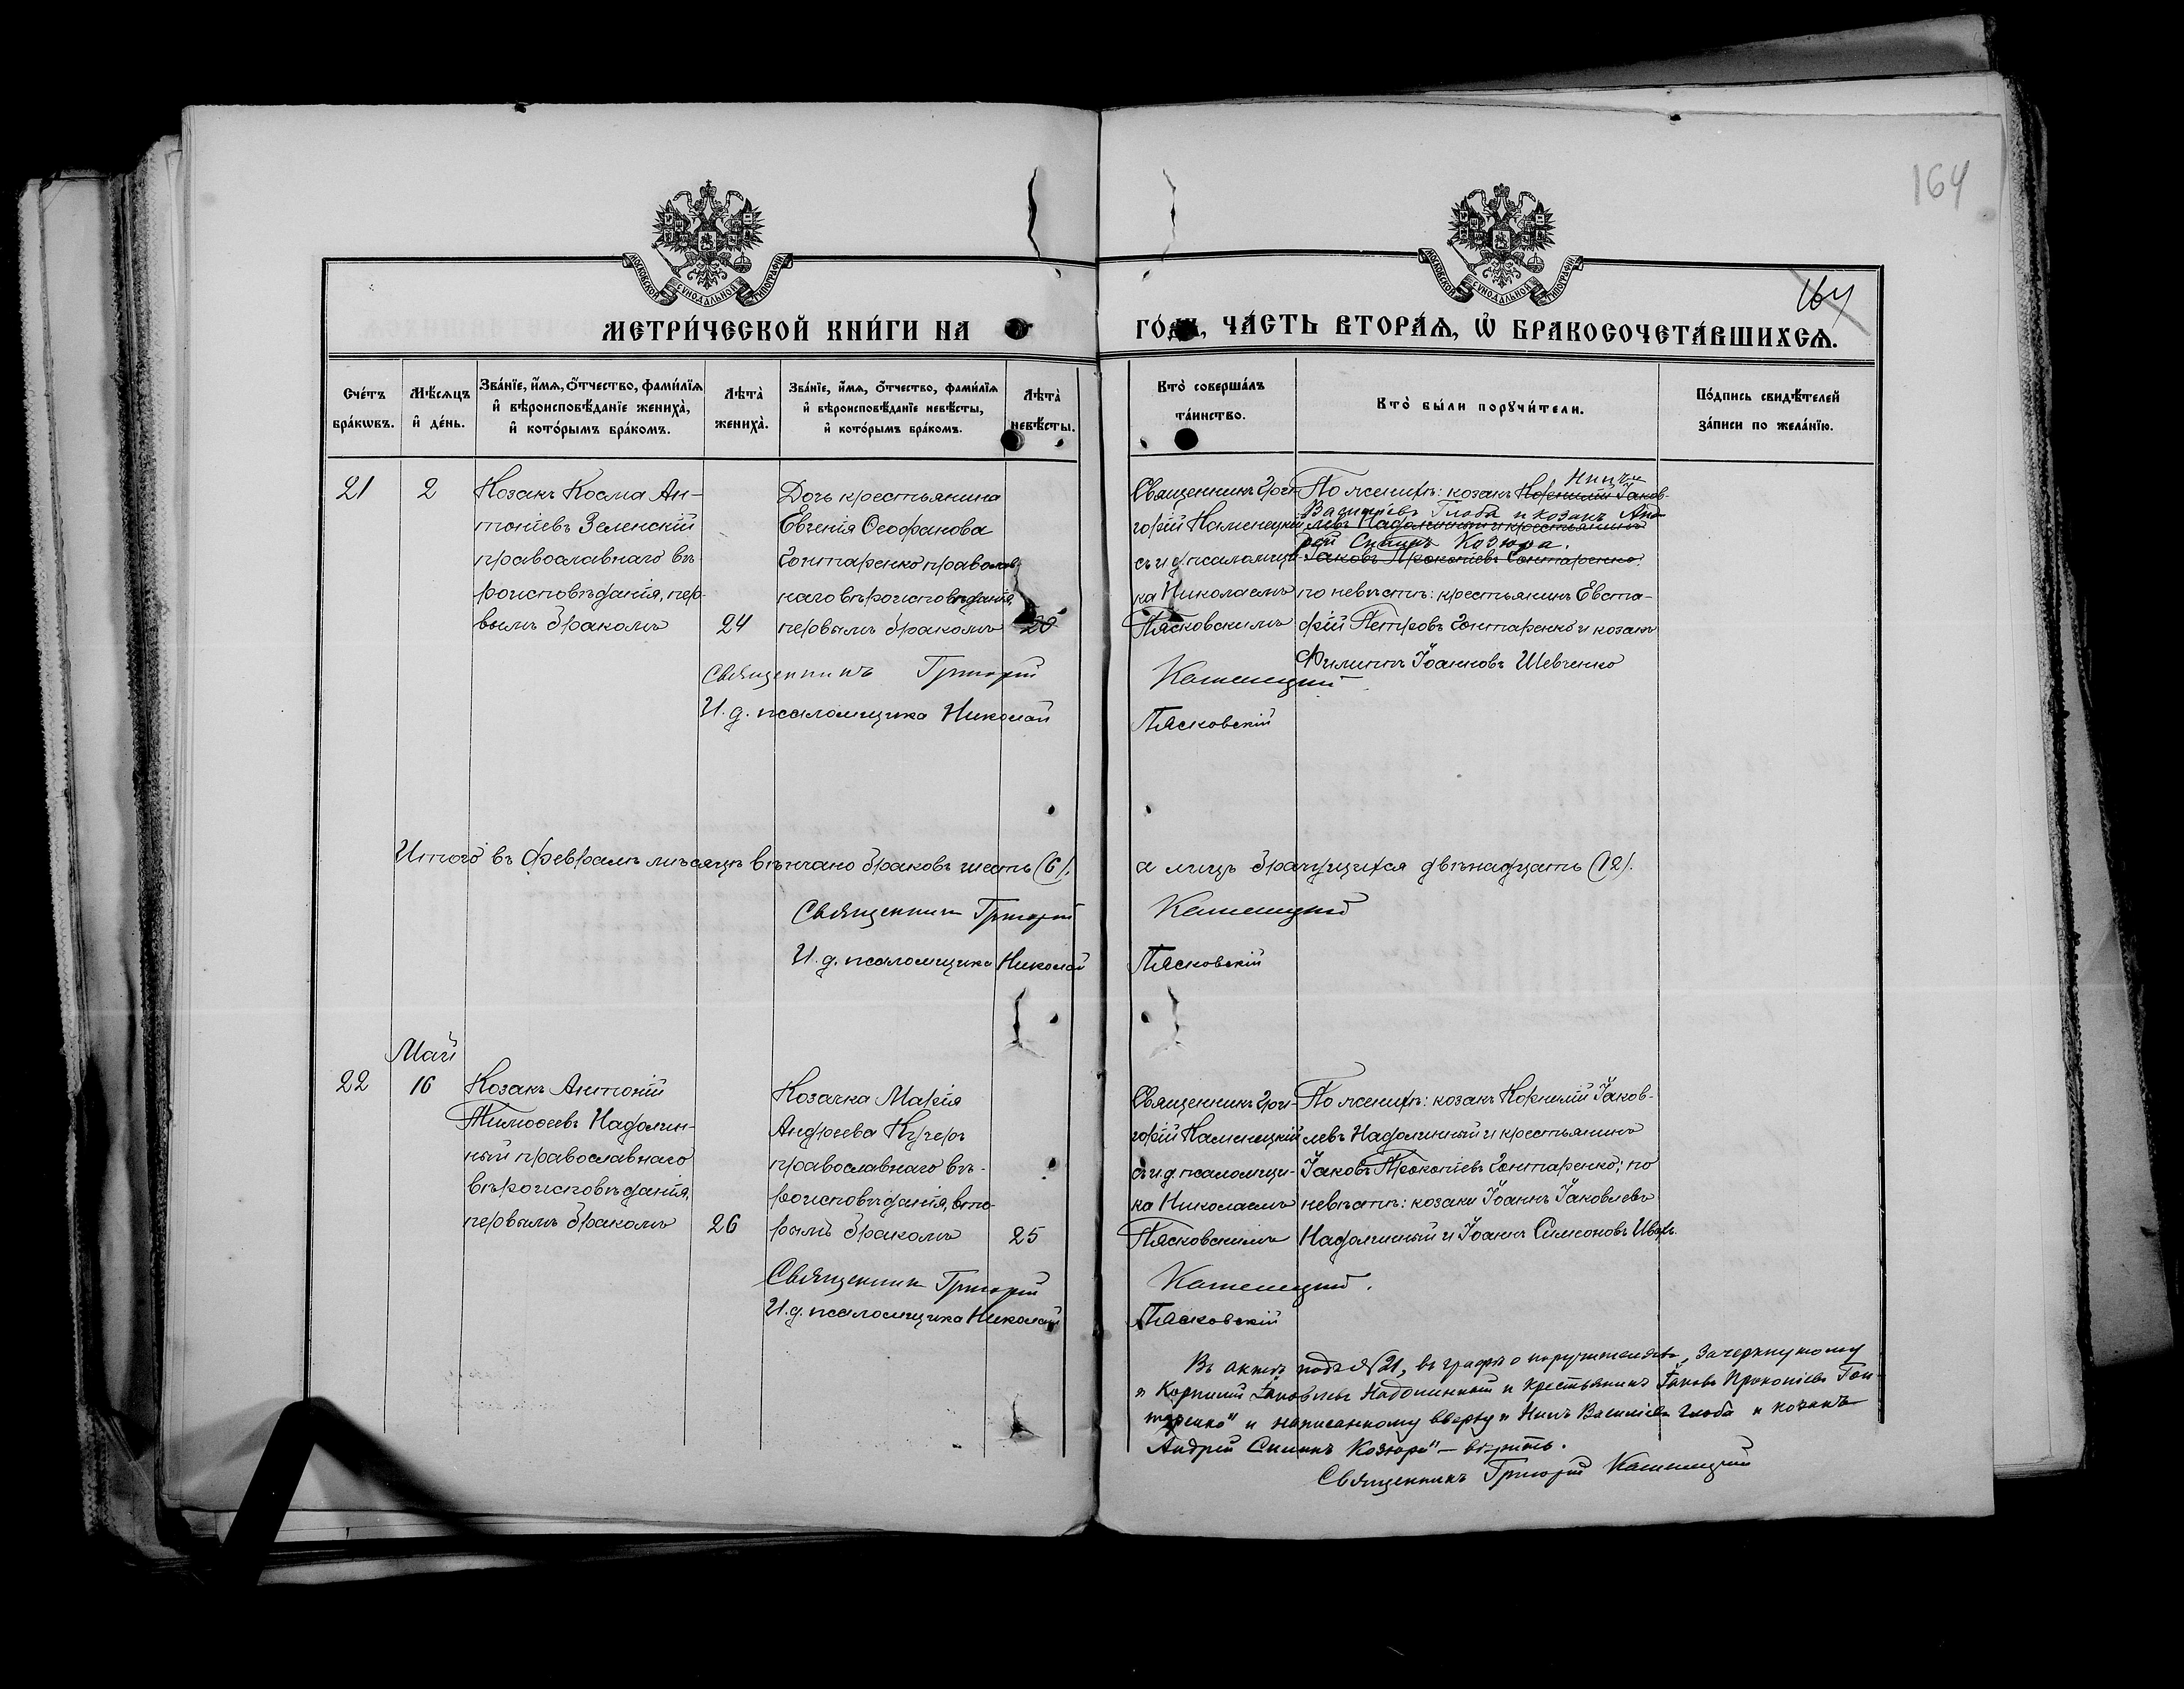 164
164
МОСКОВСКОЙ СѴНОДАЛЬНОЙ ТИПОГРАФІИ
МОСКОВСКОЙ СѴНОДАЛЬНОЙ ТИПОГРАФІИ
МЕТРИ́ЧЕСКОЙ КНИ́ГИ НА ГО́ДЪ, ЧА́СТЬ ВТОРА́Ѧ, Ѡ҆ БРАКОСОЧЕТА́ВШИХСѦ.
Сче́тъ бра́кѡвъ.
Мѣ́сѧцъ и҆ де́нь.
Зва́нїе, и҆́мѧ, ѻ҆́тчество, фами́лїѧ
и҆ вѣроисповѣ́данїе жениха̀,
и҆ кото́рымъ бра́комъ.
Лѣта̀ жениха̀.
Зва́нїе, и҆́мѧ, ѻ҆́тчество, фами́лїѧ
и҆ вѣроисповѣ́данїе невѣ́сты,
и҆ кото́рымъ бра́комъ.
Лѣта̀ невѣ́сты.
Кто̀ соверша́лъ
та́инство.
Кто̀ бы́ли порꙋчи́тели.
По́дпись свидѣ́телей
за́писи по жела́нїю.
21
2
Козакъ Косма Ан-
тоніевъ Зеленскій
православнаго вѣ-
роисповѣданія, пер-
вымъ бракомъ
24
Дочь крестьянина
Евгенія Ѳеофанова
Гонтаренко православ-
наго вѣроисповѣданія,
первымъ бракомъ
20
Священникъ Гри-
горій Каменецкій
съ и.д. псаломщи-
ка Николаемъ
Пясковскимъ
По женихѣ: козакъ Корнилій Іаков-
левъ Надолинный и крестьянинъ
Іаковъ Прокопіевъ Гонтаренко;
Василіевъ Глоба и козакъ Анд-
рей Силинъ Козюра.
по невѣстѣ: крестьянинъ Евста-
фій Петровъ Гонтаренко и козакъ
Филиппъ Іоанновъ Шевченко
Священникъ Григорій Каменецкій
И. д. псаломщика Николай Пясковскій
Итого въ февралѣ мѣсяцѣ вѣнчано браковъ шесть (6), а лицъ брачущихся двѣнадцать (12).
Священникъ Григорій Каменецкій
И. д. псаломщика Николай Пясковскій
Май
22
16
Козакъ Антоній
Тимоѳеевъ Надолин-
ный православнаго
вѣроисповѣданія,
первымъ бракомъ
26
Козачка Марія
Андреева Кучеръ
православнаго вѣ-
роисповѣданія, вто-
рымъ бракомъ
25
Священникъ Гри-
горій Каменецкій
съ и.д. псаломщи-
ка Николаемъ
Пясковскимъ
По женихѣ: козакъ Корнилій Іаков-
левъ Надолинный и крестьянинъ
Іаковъ Прокопіевъ Гонтаренко; по
невѣстѣ: козаки Іоаннъ Іаковлевъ
Надолинный и Іоаннъ Симоновъ
Священникъ Григорій Каменецкій.
И. д. псаломщика Николай Пясковскій
Въ актѣ подъ №21, въ графѣ о поручителяхъ, зачеркнутому
„Корнилій Іаковлевъ Надолинный и крестьянинъ Іаковъ Прокопіевъ Гон-
таренко" и написанному вверху „Василіевъ Глоба и козакъ
Андрей Силинъ Козюра" – вѣрить.
Священникъ Григорій Каменецкій